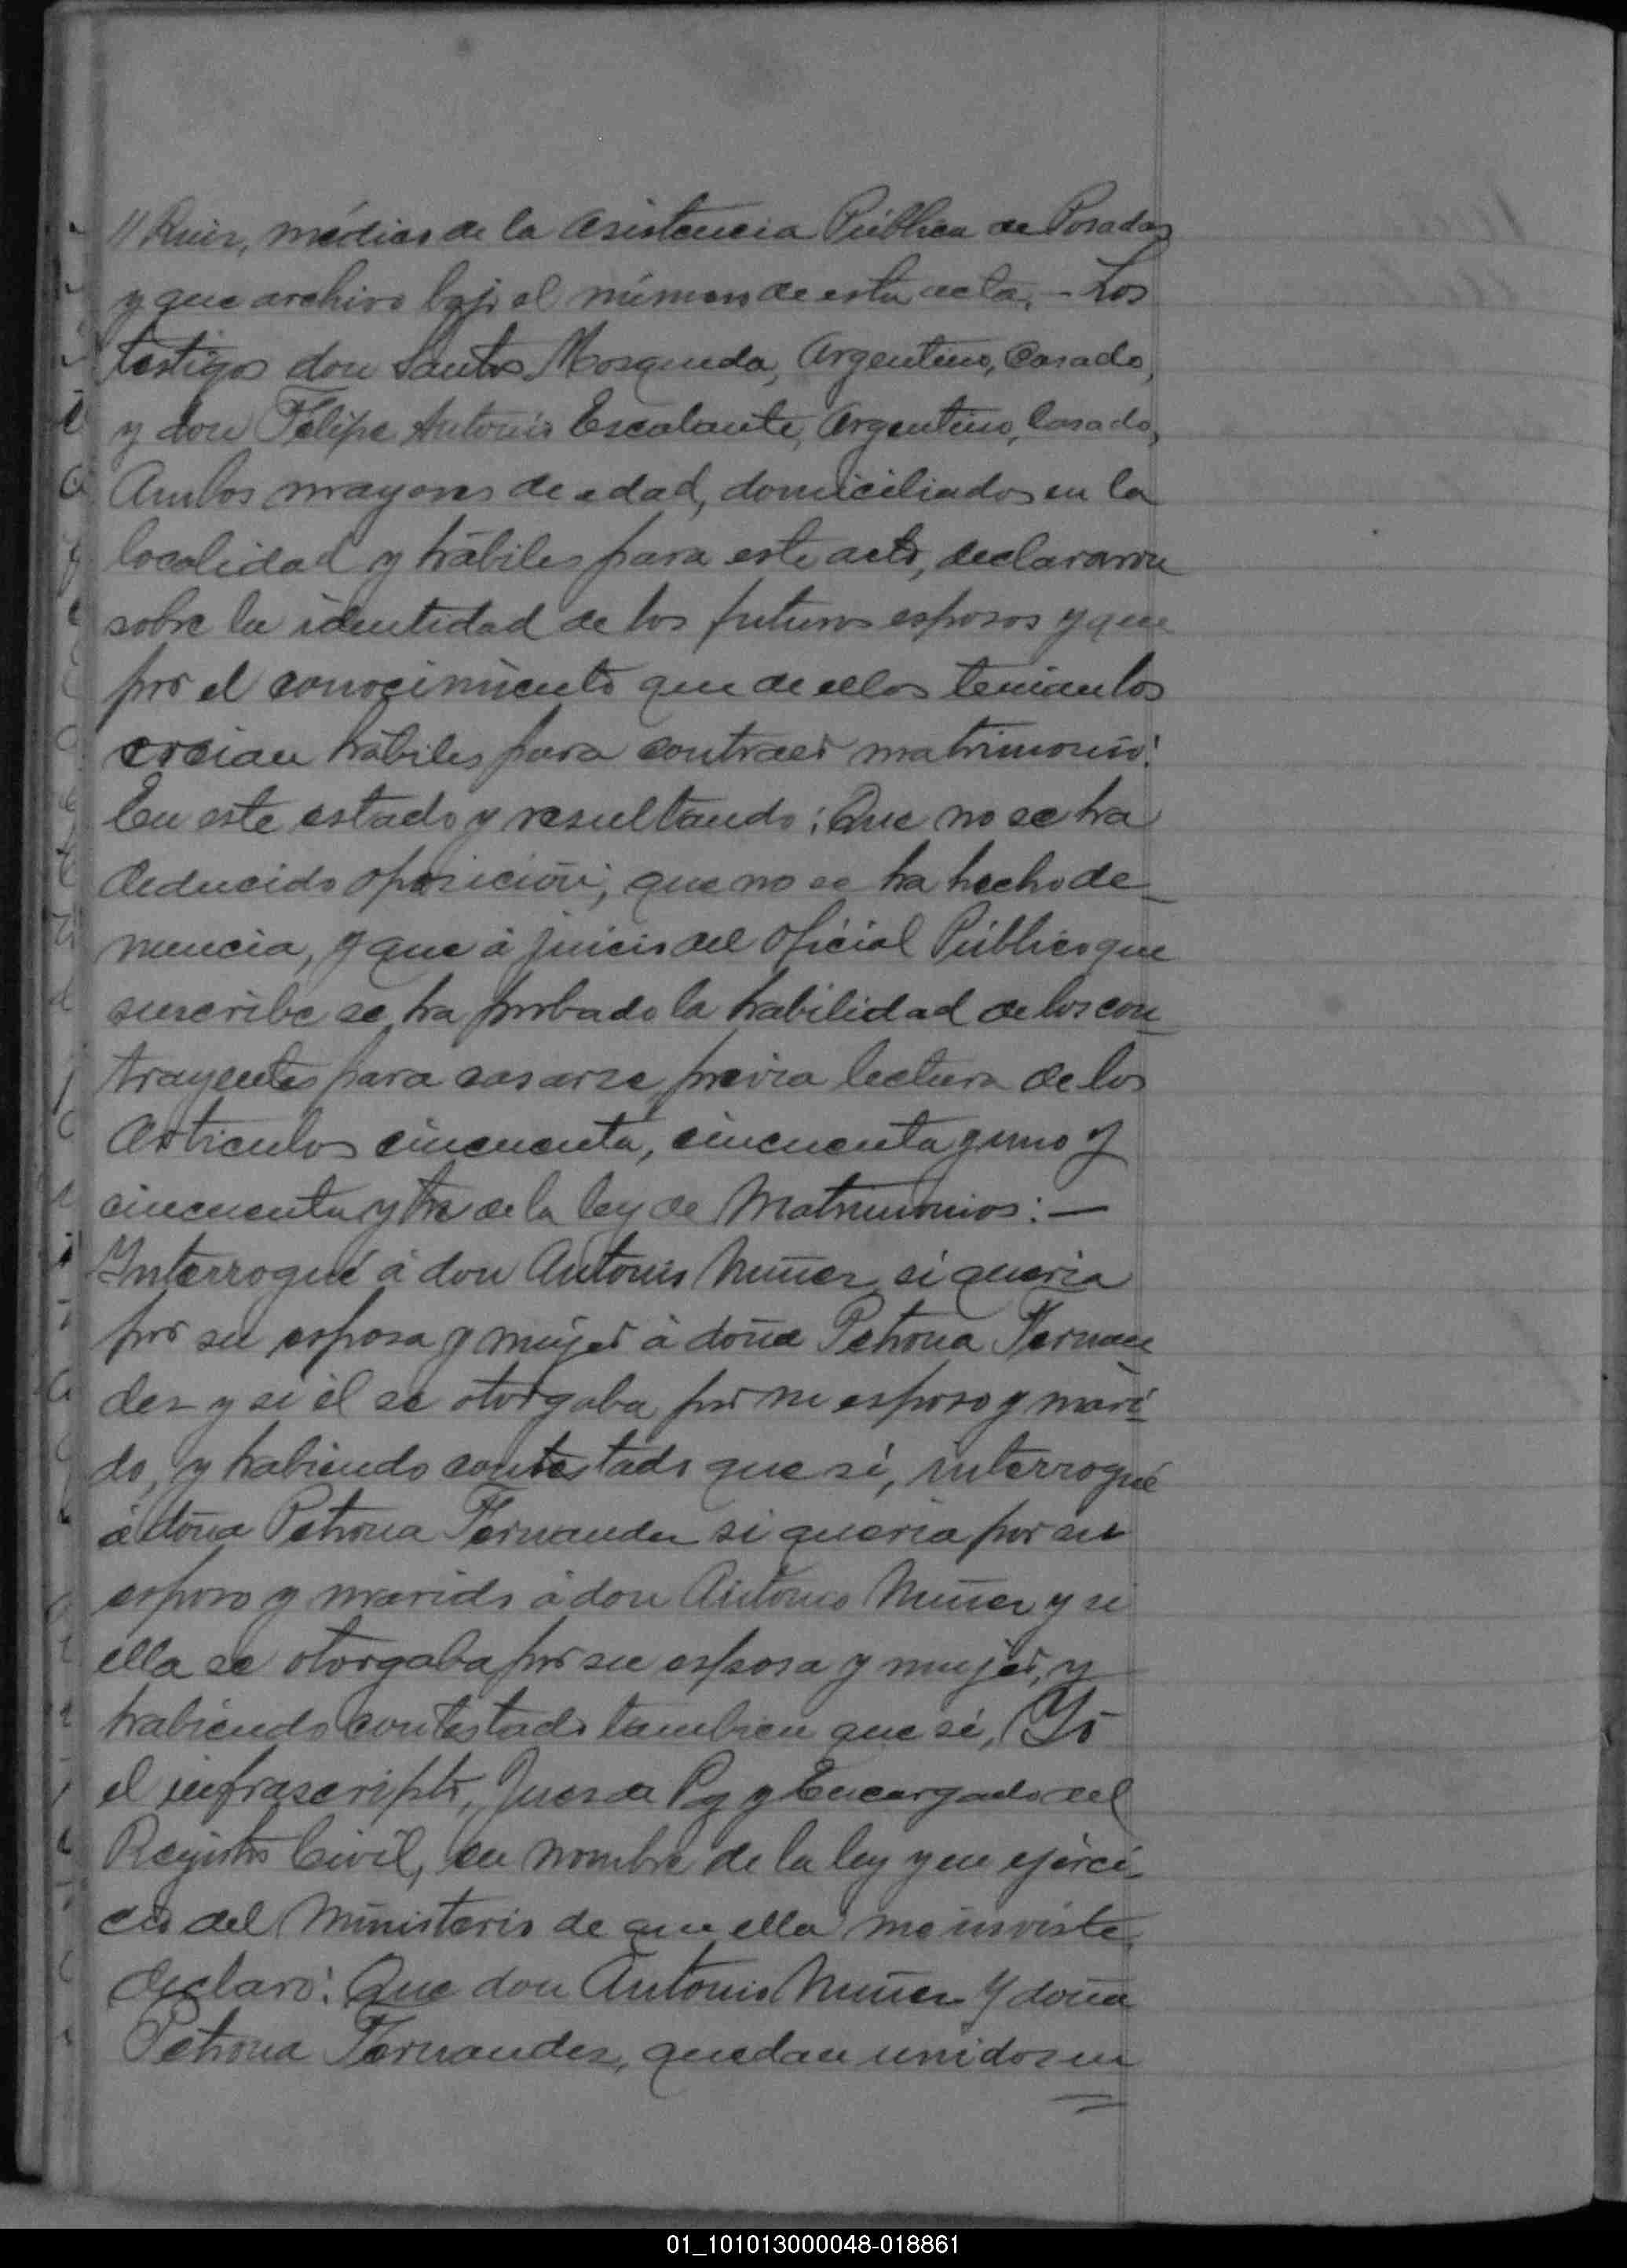 // Ruiz, médicos de la Asistencia Pública de Posadas
y que archivo bajo el número de esta acta. - Los
testigos don Santos Mosqueda, Argentino, Casado,
y don Felipe Antonio Escalante, Argentino, Casado,
Ambos mayores de edad, domiciliados en la
localidad y hábiles para este acto, declararon
sobre la identidad de los futuros esposos y que
por el conocimiento que de ellos tenian los
creian hábiles para contraer matrimonio:
En este estado y resultando: Que no se ha
deducido oposición, que no se ha hecho de-
nuncia, y que á juicio del Oficial Público que
suscribe se ha probado la habilidad de los con-
trayentes para casarse, previa lectura de los
Articulos cincuenta, cincuenta y uno y
cincuenta y tres de la ley de Matrimonios: —
Interrogué á don Antonio Nuñez si queria
por su esposa y mujer á doña Petrona Fernan-
dez y si él se otorgaba por su esposo y mari-
do, y habiendo contestado que si, interrogué
á doña Petrona Fernandez si queria por su
esposo y marido á don Antonio Nuñez y si
ella se otorgaba por su esposa y mujer, y
habiendo contestado tambien que si, Yó
el infrascripto, Juez de Paz y Encargado del
Registro Civil, en nombre de la ley y en ejerci-
cio del Ministerio de que ella me inviste,
declaro: Que don Antonio Nuñez y doña
Petrona Fernandez, quedan unidos en
01_101013000048-018861